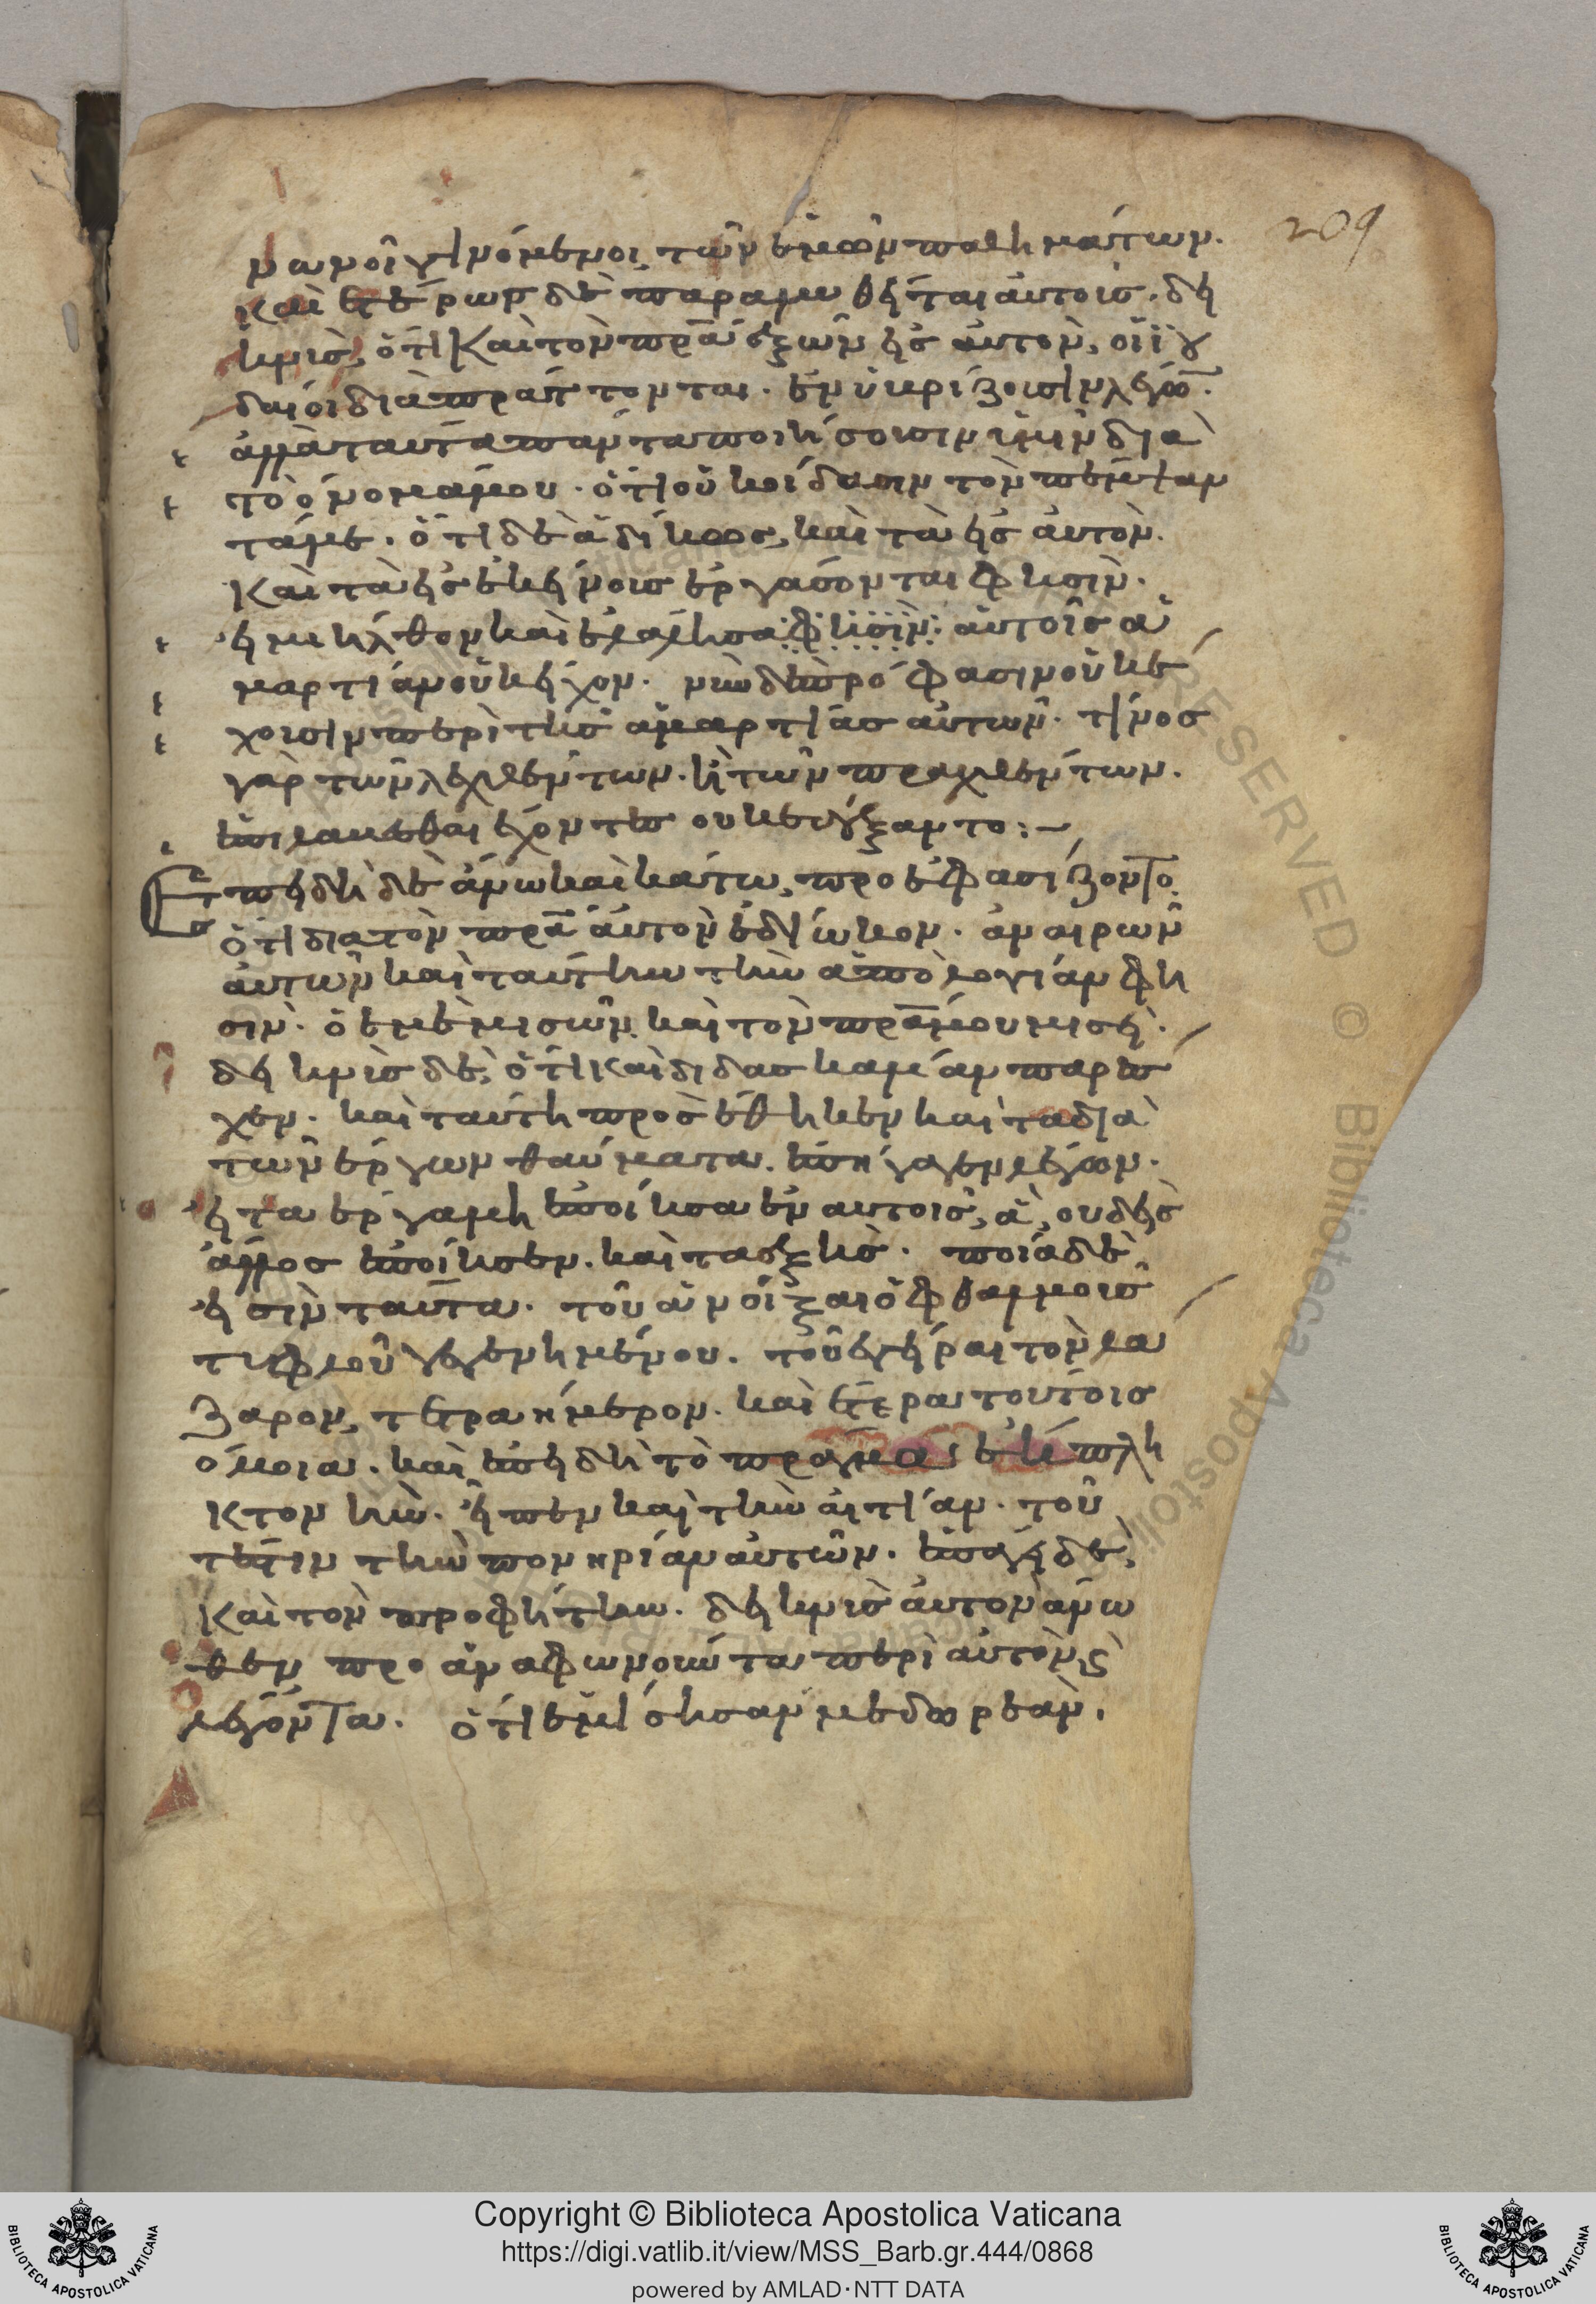 209
νωνοὶ γινόμενοι, τῶν ἐμῶν παθημάτων.
καὶ ἑτέρως δὲ παραμυθῆται αὐτοῖς. δει
κνὺς, ὅτι καὶ τὸν πρ̅α̅ ἐξ ὧν εἰς αὐτὸν, οἱ ϊου
δαῖοι διαπράττονται. ἐνυβρίζουσιν λέγων.
ἀλλὰ ταῦτα πάντα ποιήσουσιν ὑμῖν διὰ
τὸ ὄνομά μου. ὅτι οὐκ οἴδασιν τὸν πέμψαν
τά με. ὅτι δὲ ἀδίκως, καὶ τὰ εἰς αὐτὸν.
καὶ τὰ εἰς ἐκείνοις ἐργάσονται φησὶν.
εἰ μὴ ἦλθον καὶ ἐλάλησα φησὶν αὐτοῖς ἁ
μαρτίαν οὐκ εἶχον. νῦν δὲ πρόφασιν οὐκ ἔ
χουσιν περὶ τῆς ἁμαρτίας αὐτῶν. τίνος
γὰρ τῶν λεχθέντων. ἢ τῶν πραχθέντων.
ἐπιλαβέσθαι ἔχοντες οὐκ ἐδείξαντο:~
Ἐπειδὴ δὲ ἄνω καὶ κάτω, προεφασίζοντο
ὅτι διὰ τὸν πρ̅α̅ αὐτὸν ἐδίωκον. ἀναιρῶν
αὐτῶν καὶ ταύτην τὴν ἀπολογίαν φη
σιν. ὁ ἐμὲ μισῶν καὶ τὸν πρ̅α̅ μου μισεῖ.
δεικνὺς δὲ, ὅτι καὶ διδασκαλίαν παρέ
σχεν. καὶ ταύτη προσέθηκεν καὶ τὰ διὰ
τῶν ἔργων θαύματα. ἐπήγαγεν λέγων.
εἰ τὰ ἔργα μὴ ἐποίησα ἐν αὐτοῖς, ἃ οὐδεὶς
ἄλλος ἐποίησεν. καὶ τὰ ἑξῆς. ποῖα δὲ
εἰσὶν ταῦτα. τοῦ ἀνοῖξαι ὀφθαλμοὺς
τυφλοῦ γεγενημένου. τοῦ ἐγεῖραι τὸν λά
ζαρον, τετραήμερον. καὶ ἕτερα τούτοις
ὅμοια. καὶ ἐπειδὴ τὸ πρᾶγμα ἐκπλη
κτον ἦν. εἶπεν καὶ τὴν αἰτίαν. τοῦτ
τέστιν τὴν πονηρίαν αὐτῶν. ἐπάγει δὲ
καὶ τὸν προφήτην. δεικνὺς αὐτὸν ἄνω
θεν προαναφωνοῦντα περὶ αὐτὸν, καὶ
λέγοντα. ὅτι ἐμίσησάν με δωρεάν.
Copyright © Biblioteca Apostolica Vaticana
https://digi.vatlib.it/view/MSS_Barb.gr.444/0868
powered by AMLAD·NTT DATA
BIBLIOTECA APOSTOLICA VATICANA
BIBLIOTECA APOSTOLICA VATICANA